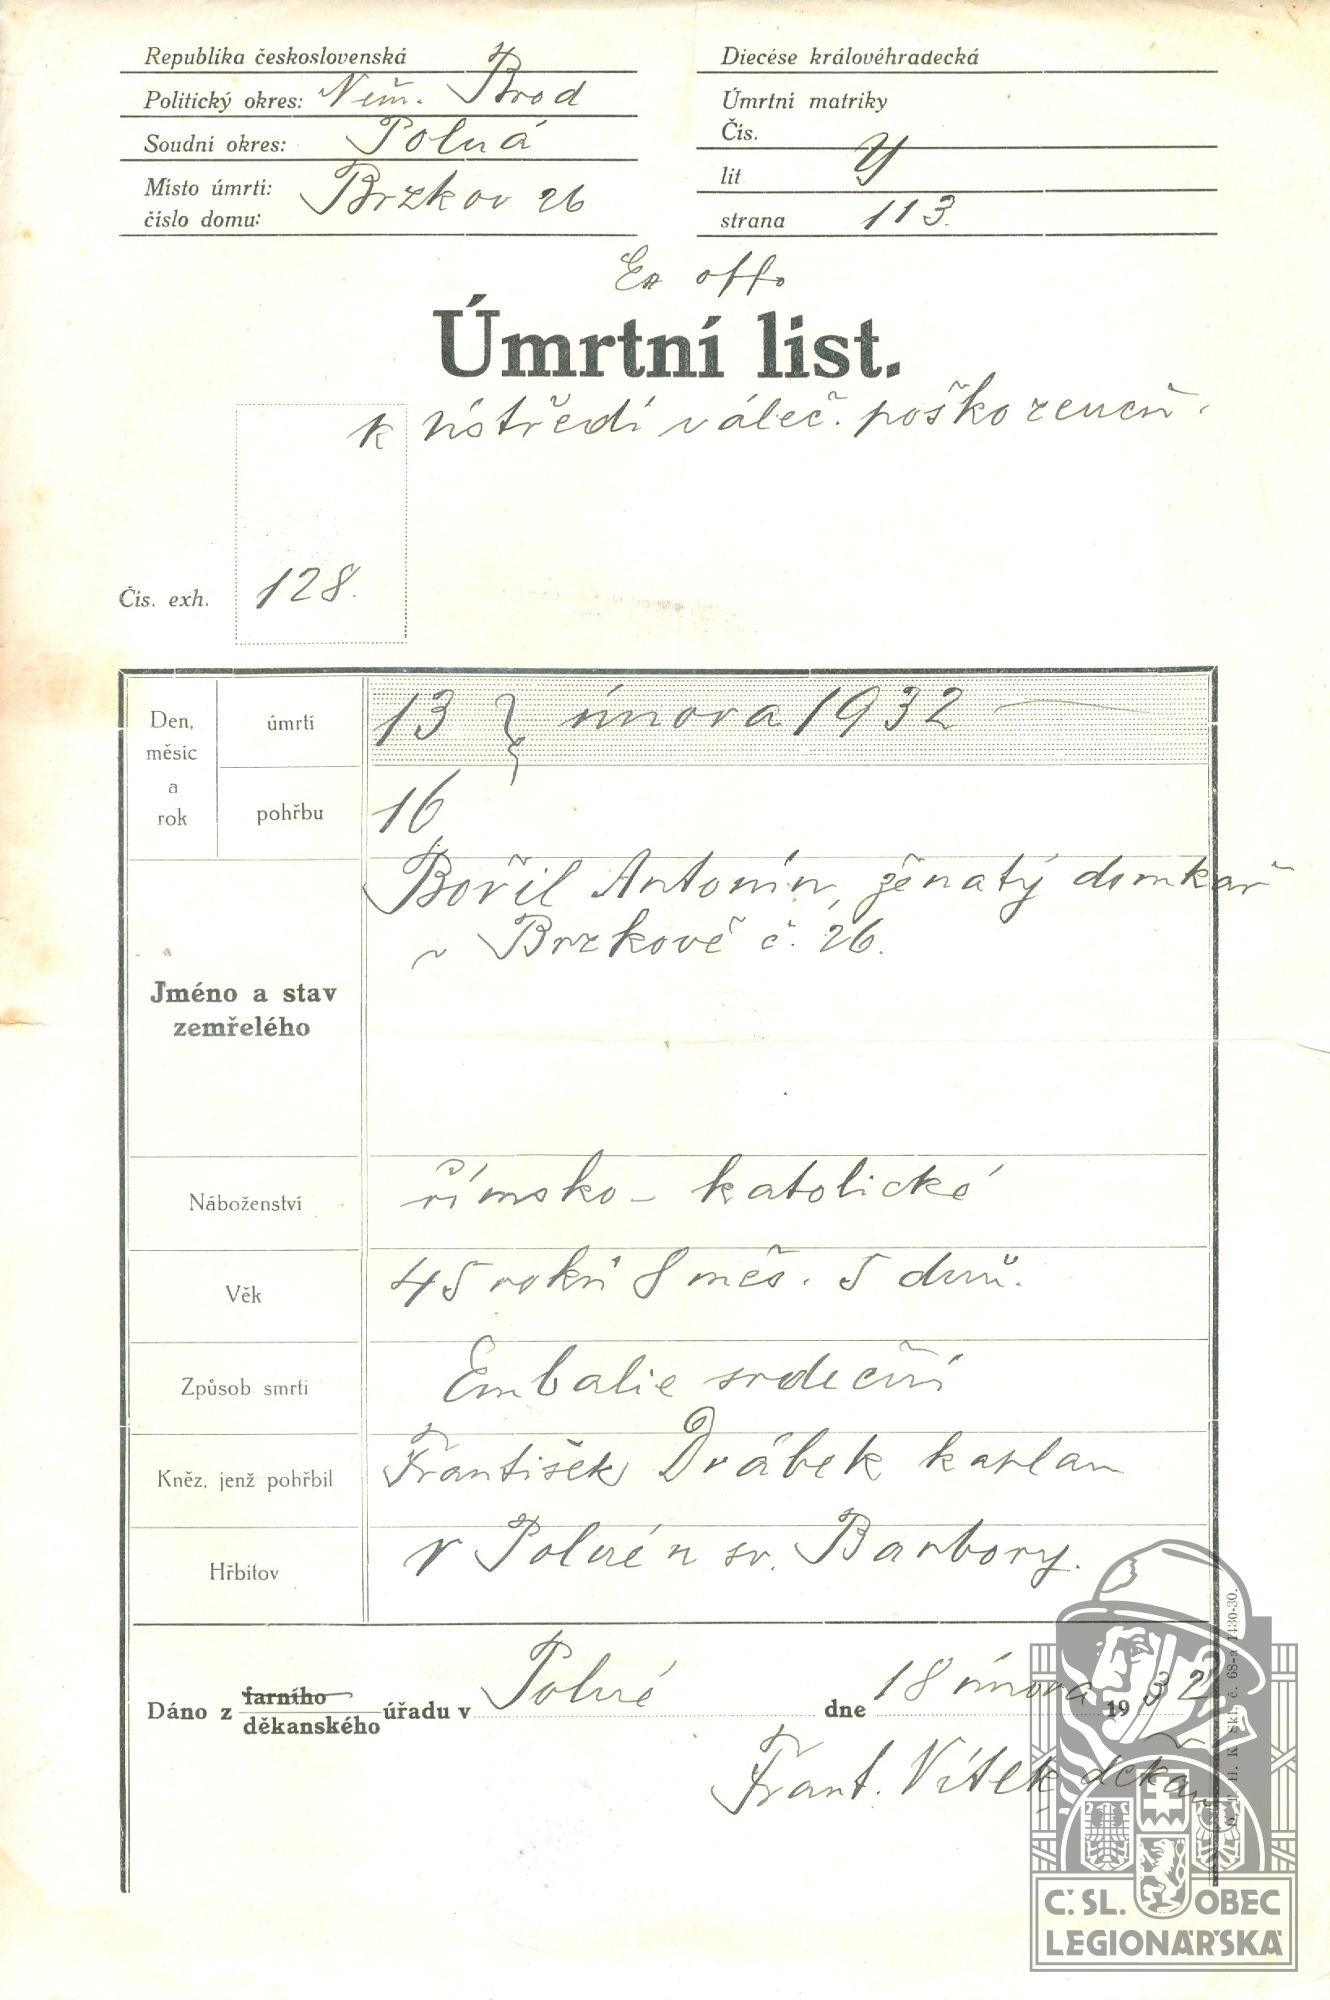 Republika československá
Politický okres: Něm. Brod
Soudní okres: Polná
Místo úmrtí: Brzkov 26
číslo domu:
Diecése královéhradecká
Úmrtní matriky
Čís.
lit Y
strana 113.
Ex offo
Úmrtní list.
k ústředí váleč. poškozenců.
Čís. exh. 128.
Den, měsíc a rok
úmrtí 13 } února 1932
pohřbu 16
Jméno a stav zemřelého
Bořil Antonín, ženatý domkař
v Brzkově č. 26.
Náboženství římsko-katolické
Věk 45 roků 8 měs. 5 dnů.
Způsob smrti Embalie srdeční
Kněz, jenž pohřbil František Drábek kaplan
Hřbitov v Polné u sv. Barbory.
Dáno z farního
děkanského úřadu v Polné dne 18 února 1932
Frant. Vítek děkan
H. K. Skl. č. 68-a 1430-30.
Č. SL. OBEC
LEGIONÁŘSKÁ